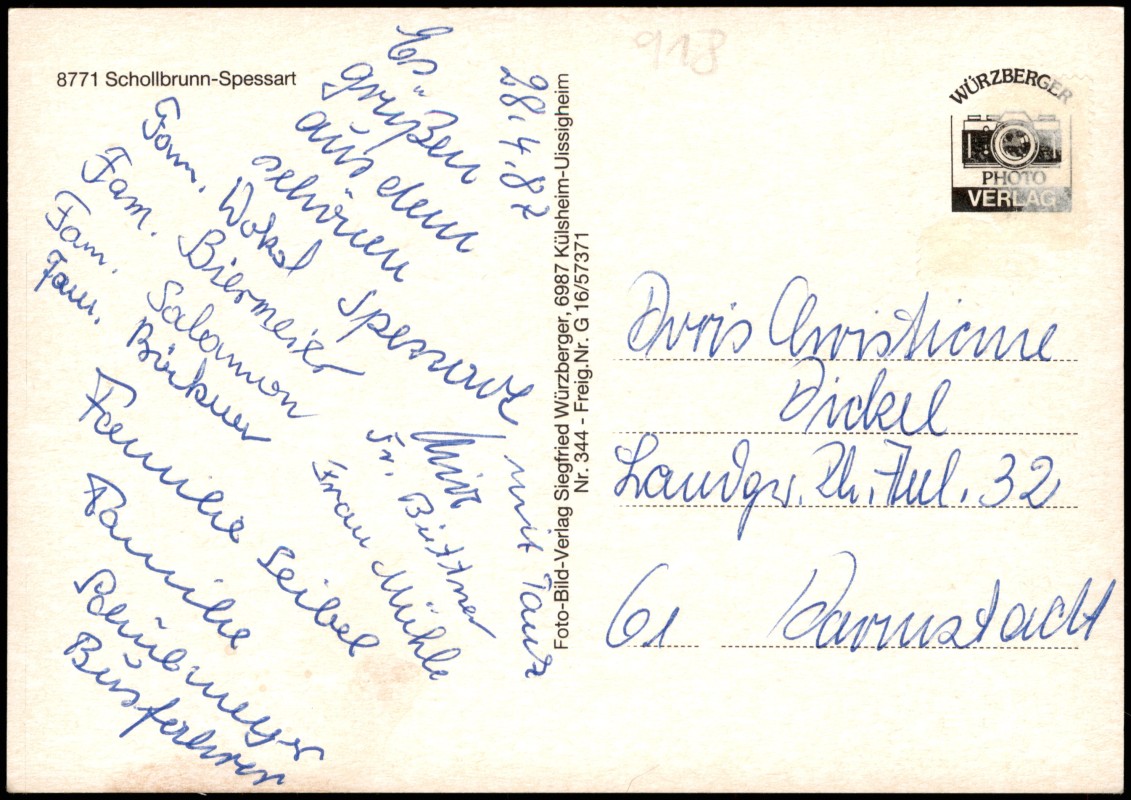 8771 Schollbrunn-Spessart
28.4.87
Es
grüßen
aus dem
schönen
Spessart mit Tanz
Fam. Wokal
Fam. Biermeier
Fam. Salomon
Fam. Börkner
Fr. Büttner
Frau Mühle
Familie Seibel
Familie
Schübmeyer
Busfahrer
Foto-Bild-Verlag Siegfried Würzberger, 6987 Külsheim-Uissigheim
Nr. 344 - Freig.Nr. G 16/57371
918
WÜRZBERGER
PHOTO
VERLAG
Doris Christiane
Dickel
Landgr. Ph. Anl. 32
61 Darmstadt